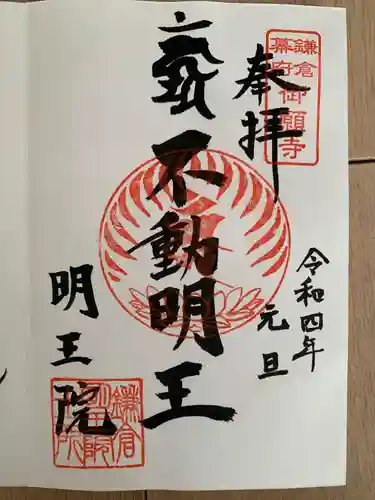 奉拝
鎌倉
幕府
御願寺
令和四年
元旦
不動明王
明王院